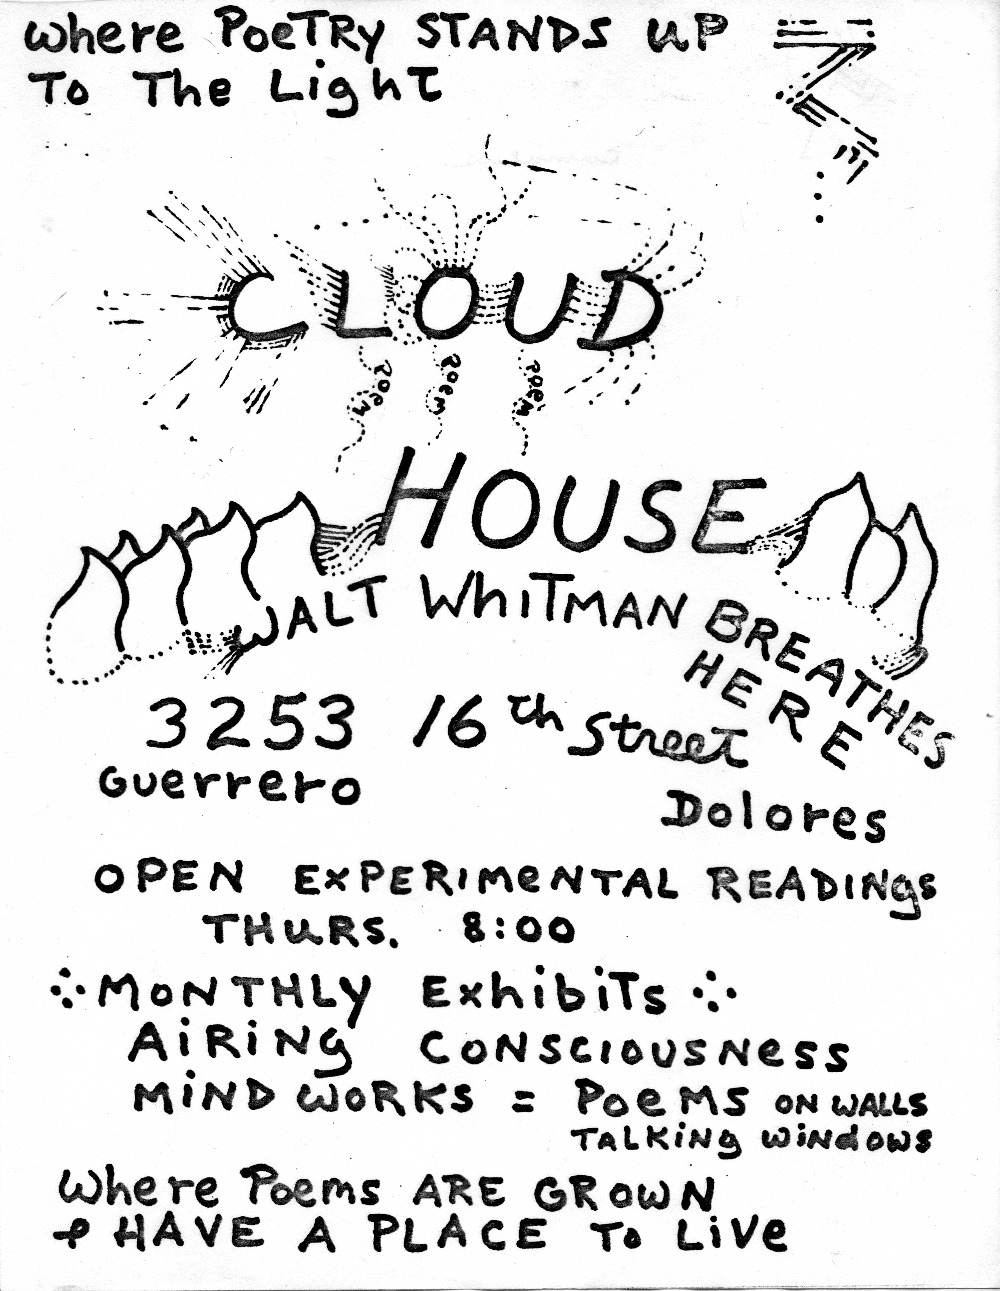 Where Poetry STANDS UP
To The Light
CLOUD
Poem Poem Poem
HOUSE
WALT WhiTMAN BREATHES
HERE
3253 16th Street
Guerrero
Dolores
OPEN EXPERIMENTAL READINgS
THURS. 8:00
MONTHLY ExhibiTs
AiRiNg CONSCIOUSNess
MiND WORKS = POeMS ON WALLS
TALKiNg WiNdOWS
Where Poems ARE GROWN
& HAVE A PLACE To LiVe